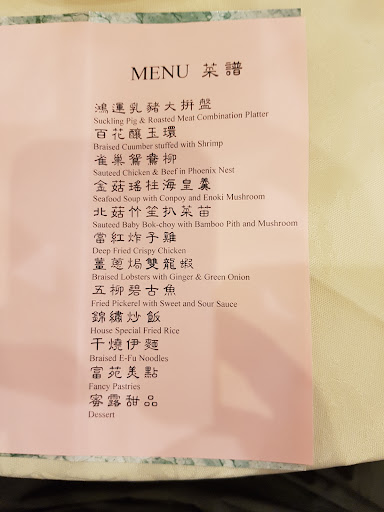 MENU 菜譜
鴻運乳豬大拼盤
Suckling Pig & Roasted Meat Combination Platter
百花釀玉環
Braised Cuumber stuffed with Shrimp
雀巢鴛鴦柳
Sauteed Chicken & Beef in Phoenix Nest
金菇瑤柱海皇羹
Seafood Soup with Conpoy and Enoki Mushroom
北菇竹笙扒菜苗
Sauteed Baby Bok-choy with Bamboo Pith and Mushroom
當紅炸子雞
Deep Fried Crispy Chicken
薑蔥焗雙龍蝦
Braised Lobsters with Ginger & Green Onion
五柳碧古魚
Fried Pickerel with Sweet and Sour Sauce
錦繡炒飯
House Special Fried Rice
干燒伊麵
Braised E-Fu Noodles
富苑美點
Fancy Pastries
蜜露甜品
Dessert